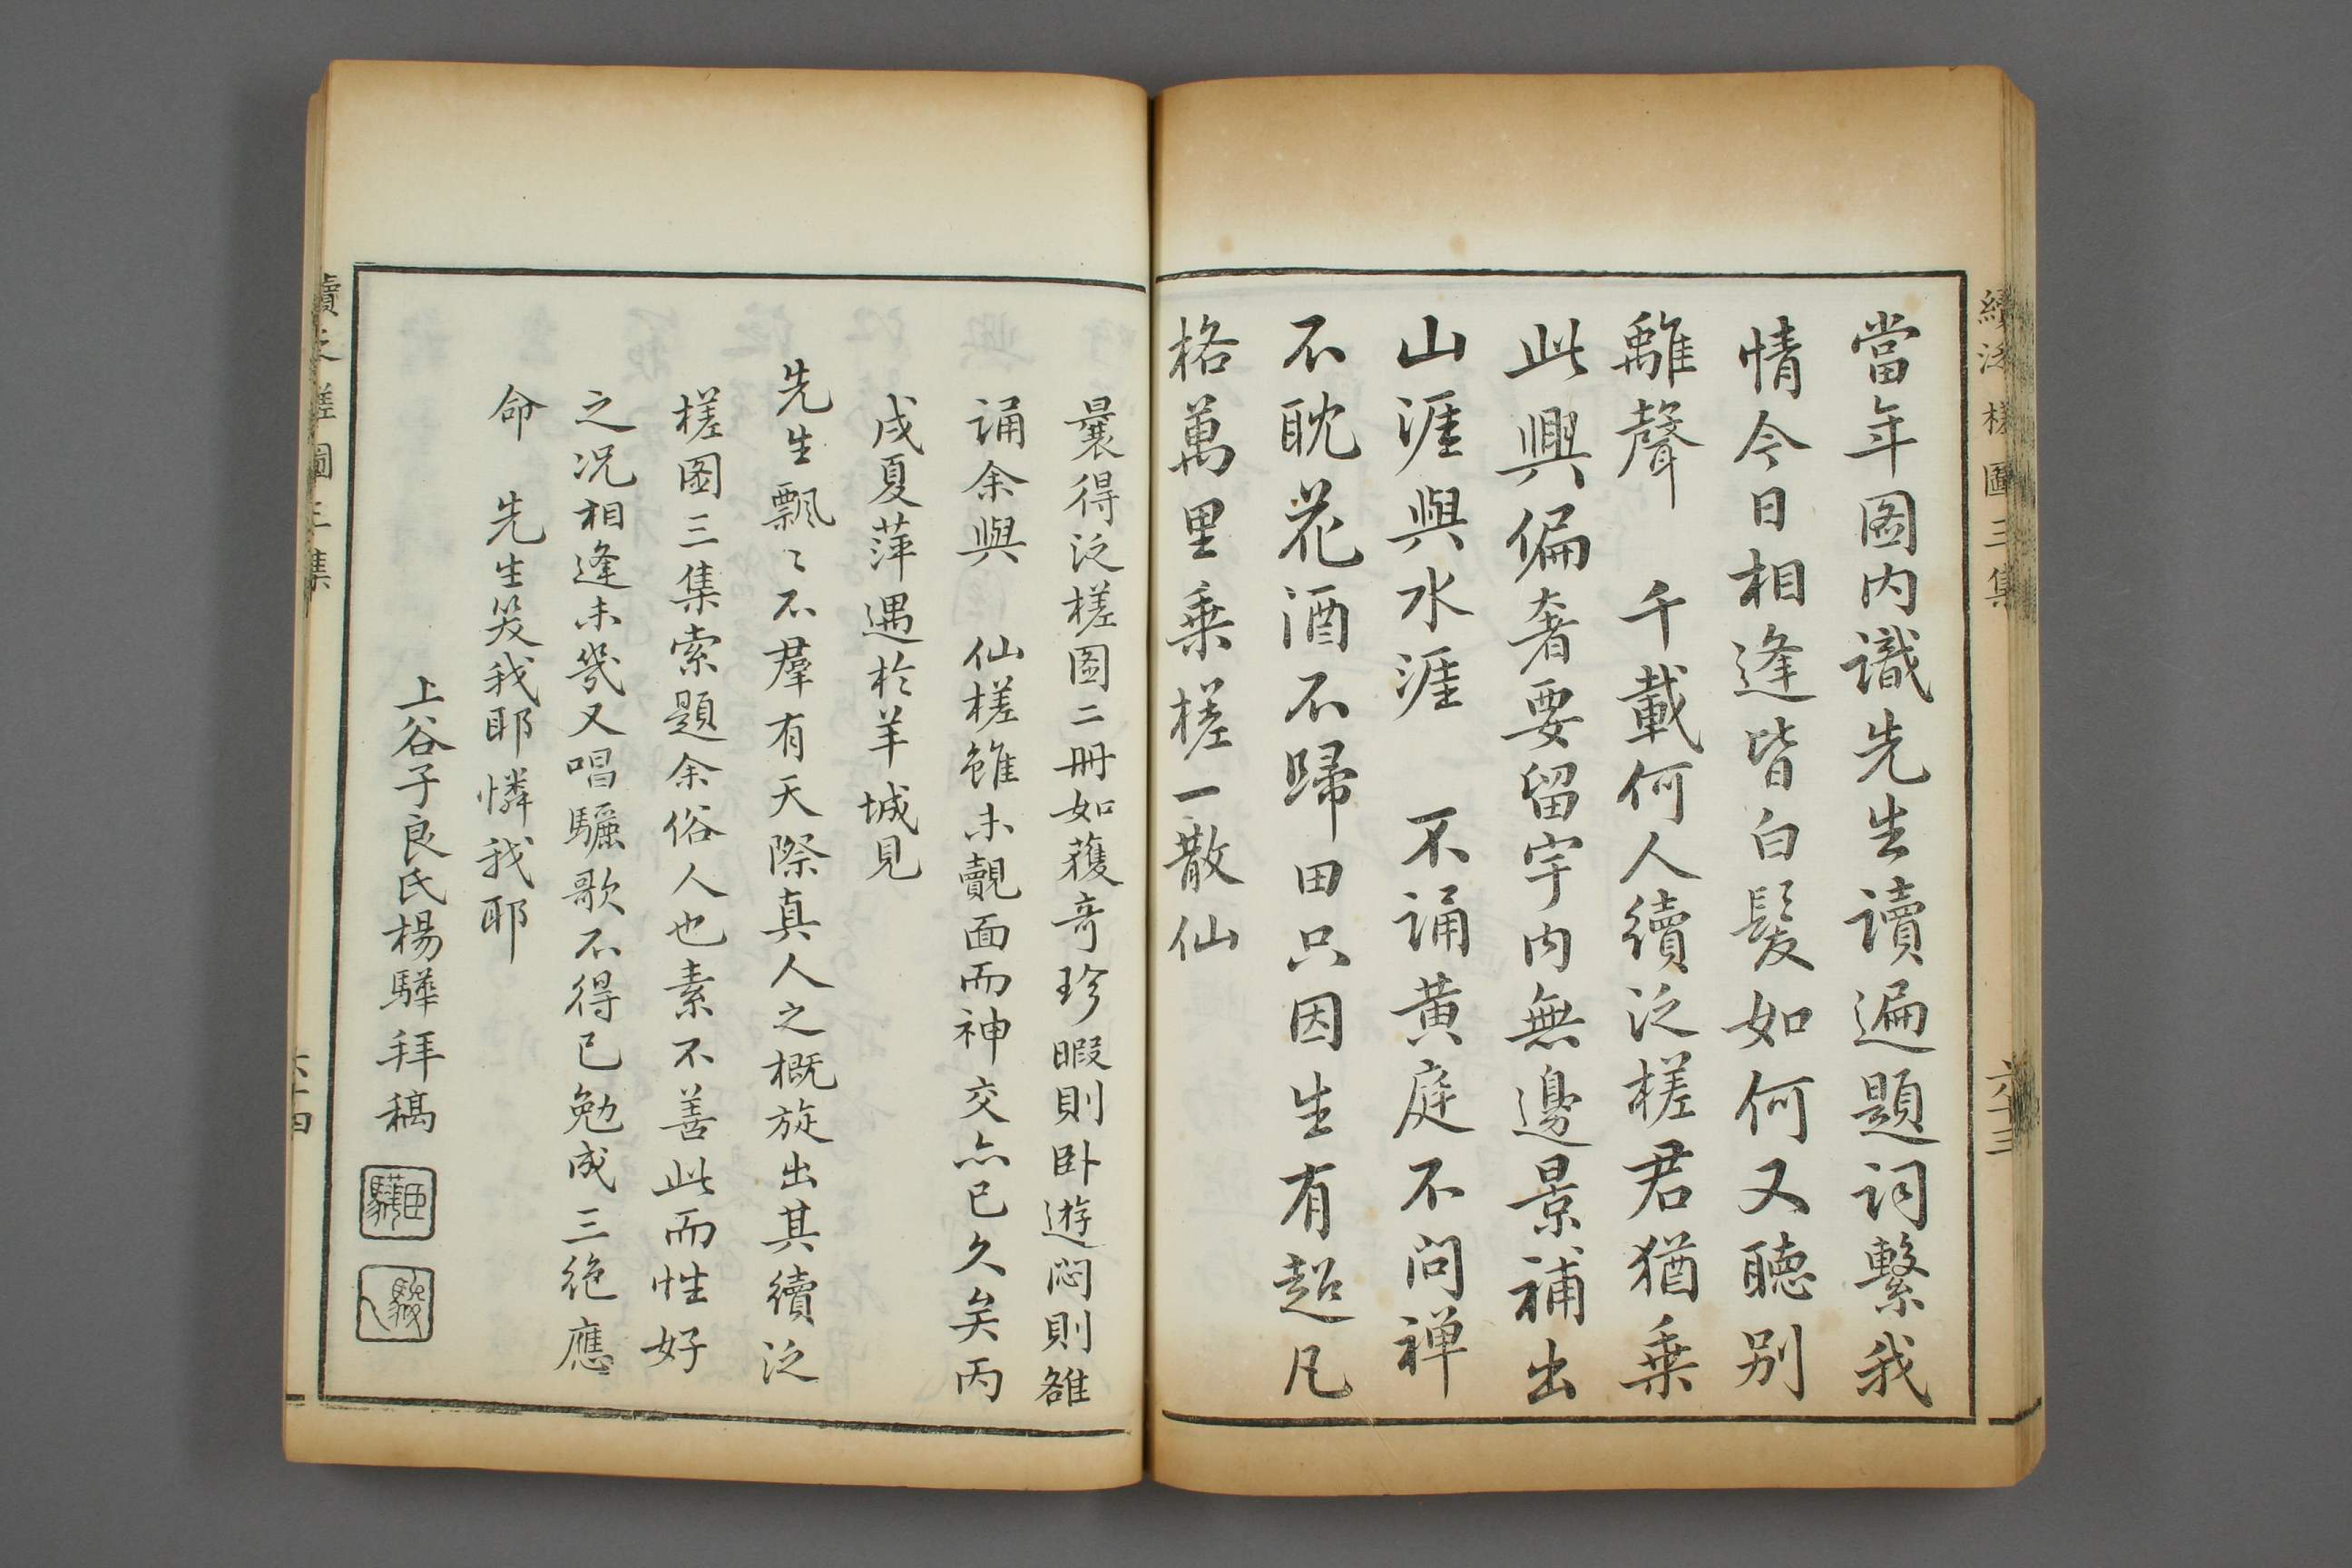 續泛槎圖三集
六十三
當年图内識先生讀遍題詞繫我
情今日相逢皆白髮如何又聴别
離聲 千載何人續泛槎君猶乗
此興偏奢要留宇内無邊景補出
山涯與水涯 不誦黄庭不问禅
不耽花酒不歸田只因生有超凡
格萬里乗槎一散仙
曩得泛槎图二冊如獲奇珍暇則卧遊悶則雒
誦余與 仙槎雖未覿面而神交亦已久矣丙
戌夏萍遇於羊城見
先生飄〻不羣有天際真人之概旋出其續泛
槎图三集索題余俗人也素不善此而性好
之况相逢未幾又唱驪歌不得已勉成三絶應
命 先生笑我耶憐我耶
上谷子良氏楊驊拜稿
續泛槎圖三集
六十四